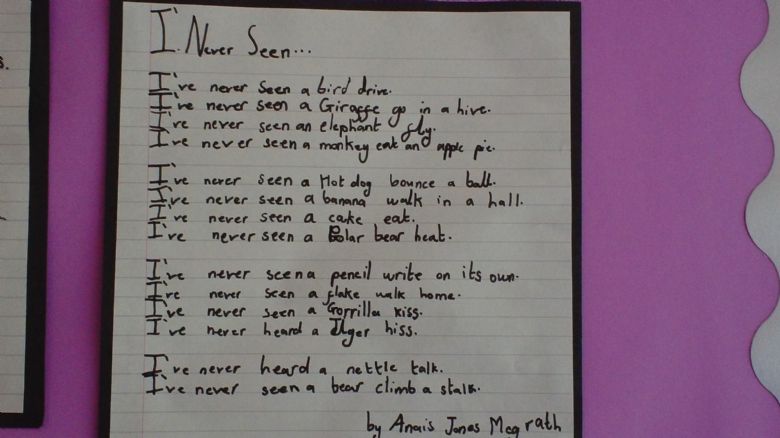 I'. Never Seen...
I've never seen a bird drive.
I've never seen a Giraffe go in a hive.
I've never seen an elephant fly.
I've never seen a monkey eat an apple pie.
I've never seen a Hot dog bounce a ball.
I've never seen a banana walk in a hall.
I've never seen a cake eat.
I've never seen a Polar bear heat.
I've never seen a pencil write on its own.
I've never seen a flake walk home.
I've never seen a Gorrilla kiss.
I've never heard a Tiger hiss.
I've never heard a nettle talk.
I've never seen a bear climb a stalk.
by Anais Jones Mcgrath
s.